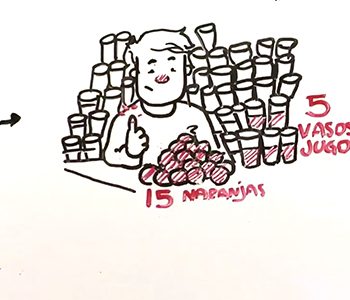 5
VASOS
JUGO
15 NARANJAS